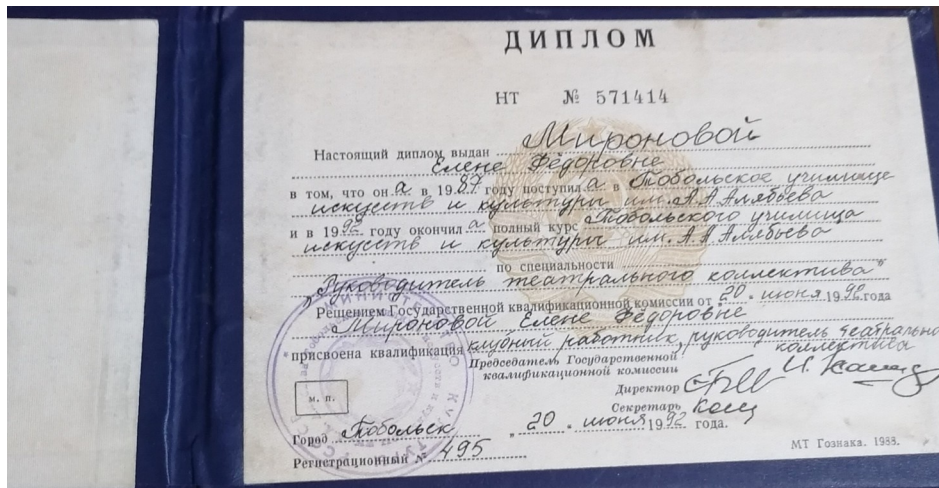 ДИПЛОМ
НТ № 571414
Настоящий диплом выдан Мироновой
Елене Фёдоровне
в том, что он а в 1987 году поступил а в Тобольское училище
искусств и культуры им. А.А.Алябьева
и в 1992 году окончил а полный курс Тобольского училища
искусств и культуры им. А.А.Алябьева
по специальности
"Руководитель театрального коллектива"
Решением Государственной квалификационной комиссии от "20" июня 1992 года
Мироновой Елене Фёдоровне
присвоена квалификация клубный работник, руководитель театрально
коллектива
Председатель Государственной
квалификационной комиссии
Директор
Секретарь
м. п.
Город Тобольск "20" июня 1992 года.
Регистрационный № 495
МТ Гознака. 1988.